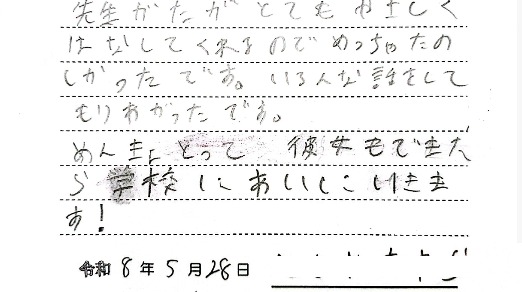 先生がたがとてもやさしく
はなしてくれるのでめっちゃたの
しかったです。いろんな話をして
もりあがったです。
めんきょとって 彼女もできた
ら 学校にあいにいきま
す!
令和8年5月28日